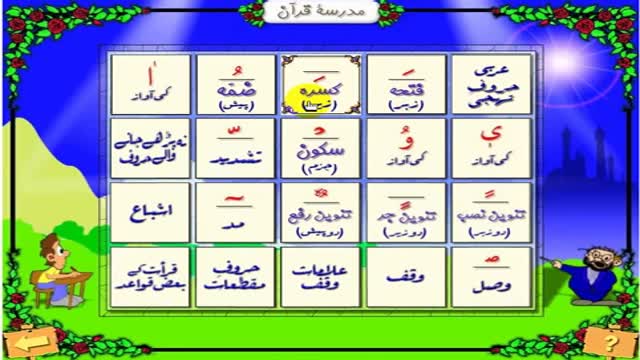 مدرسۂ قرآن
عربی حروف تہجی
فتحہ (زبر)
کسرہ
ضمّہ (پیش)
کی آواز
کی آواز
کی آواز
سکون (جزم)
تشدید
نہ پڑھے جانے والے حروف
تنوین نصب (دوزبر)
تنوین جر (دوزیر)
تنوین رفع (دوپیش)
مد
اشباع
وصل
وقف
علامات وقف
حروف مقطعات
قرأت کے بعض قواعد
?